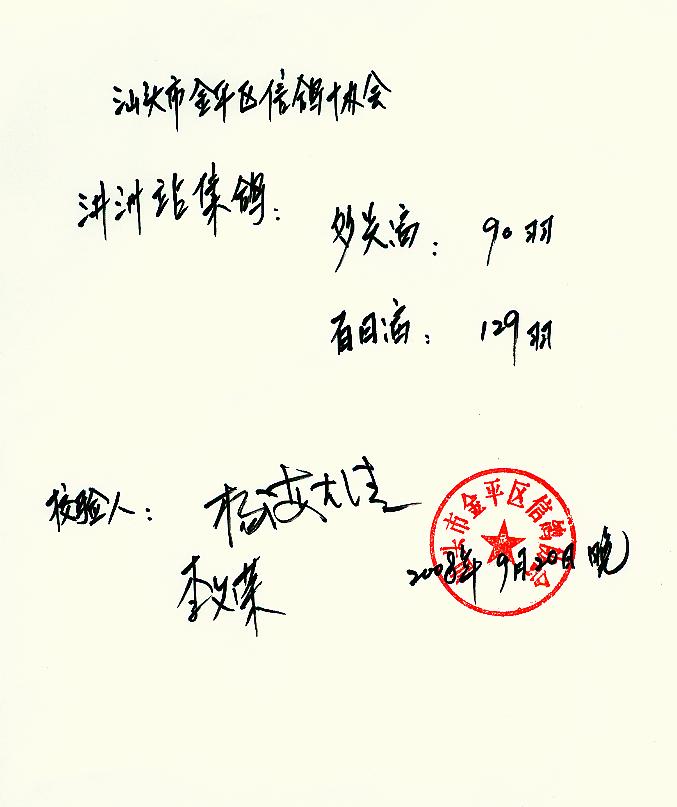 汕头市金平区信鸽协会
洪洲站集鸽：
妙兴高：90羽
百日高：129羽
校验人：
李义荣
汕头市金平区信鸽协会
2008年9月20日晚